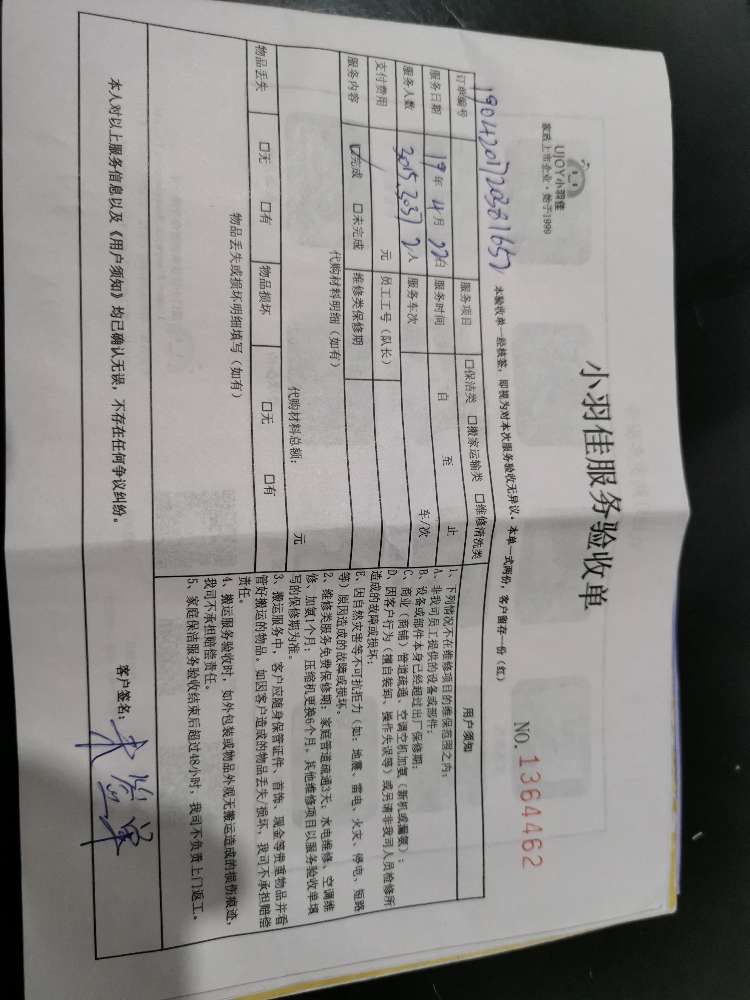 UJOY小羽佳
家政上市企业·始于1999
小羽佳服务验收单
NO. 1364462
本验收单一经核签，即视为对本次服务验收无异议。本单一式两份，客户留存一份（红）
订单编号
服务项目 □保洁类 □搬家运输类 □维修清洗类
服务日期 19年4月22日 服务时间 自 至 止
服务人数 3015.3037 2人 服务车次 车/次
支付费用 元 员工工号（队长）
服务内容 ☑完成 □未完成 维修类保修期
代购材料明细（如有）
代购材料总额： 元
物品丢失 □无 □有 物品损坏 □无 □有
物品丢失或损坏明细填写（如有）
用户须知
1、下列情况不在维修项目的维保范围之内：
A、非我司员工提供的设备或部件；
B、设备或部件本身已经超过出厂保修期；
C、商业（商铺）管道疏通、空调空机加氨（新机或漏氨）；
D、因客户行为（擅自装卸、操作失误等）或另请非我司人员检修所
造成的故障或损坏；
E、因自然灾害等不可抗拒力（如：地震、雷电、火灾、停电、短路
等）原因造成的故障或损坏。
2、维修类服务免费保修期：家庭管道疏通3天；水电维修、空调维
修、加氨1个月；压缩机更换6个月。其他维修项目以服务验收单填
写的保修期为准。
3、搬运服务中，客户应随身保管证件、首饰、现金等贵重物品并看
管好搬运的物品。如因客户造成的物品丢失/损坏，我司不承担赔偿
责任。
4、搬运服务验收时，如外包装或物品外观无搬运造成的损伤痕迹，
我司不承担赔偿责任。
5、家庭保洁服务验收结束后超过48小时，我司不负责上门返工。
本人对以上服务信息以及《用户须知》均已确认无误，不存在任何争议纠纷。
客户签名：